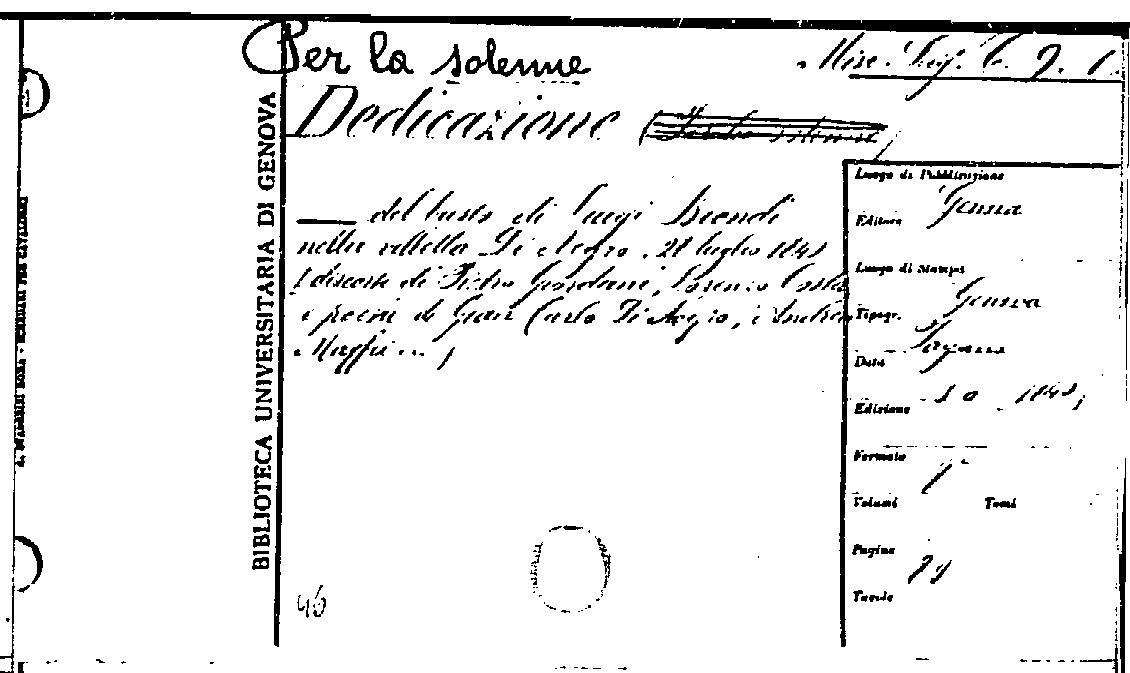 Per la solenne
Misc. Lig. C. 9. 1.
Dedicazione
BIBLIOTECA UNIVERSITARIA DI GENOVA
del busto di Luigi Biondi
nella villetta Di Negro. 28 luglio 184
(discorsi di Pietro Giordani, Lorenzo Costa
e poesie di Gian Carlo Di Negro, e Andrea
Maffei...)
Luogo di Pubblicazione
Genova
Editore
Luogo di Stampa
Genova
Tipogr.
Data
Edizione
Formato
Volumi Tomi
Pagine
Tavole
46